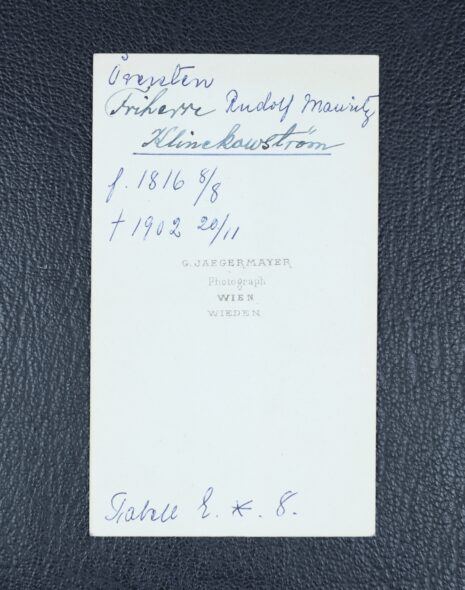 Öfversten
Friherre Rudolf Mauritz
Klinckowström
f. 1816 8/8
† 1902 20/11
G. JAEGERMAYER
Photograph
WIEN
WIEDEN
Tabell E. *. 8.